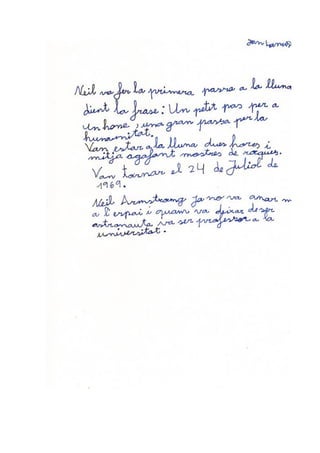 Neil va fer la primera passa a la lluna
dient la frase: Un petit pas per a
un home, una gran passa per la
humanitat.
Van estar a la lluna dues hores i
mitja agafant mostres de roques.
Van tornar el 24 de Juliol de
1969.
Neil Armstrong ja no va anar m
a l'espai i quan va deixar de ser
astronauta va ser professor a la
universitat.